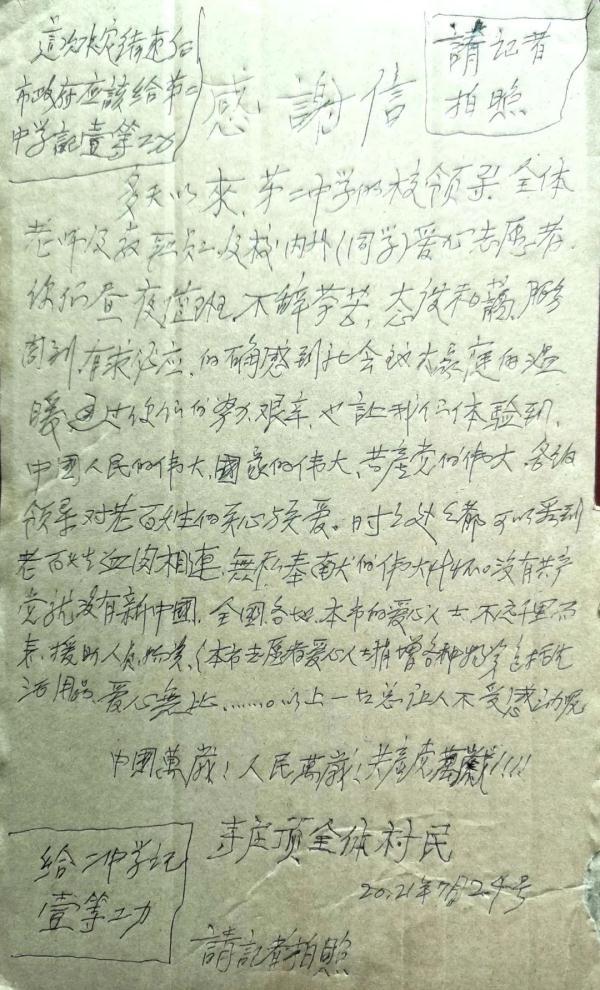 這次
市政府应該给第二
中学記壹等功
請記者
拍照
感謝信
多天以來，第二中学的校领导，全体
老师及教职员工及校内外(同学)爱心志愿者，
你们昼夜值班，不辞劳苦，态度和藹，服务
周到，有求必应，的确感到社会的大家庭的温
暖，通过你们的努力艰辛，也让我们体验到，
中國人民的伟大，國家的伟大，共產党的伟大，各级
领导对老百姓的关心与关爱。时时处处都可以看到
老百姓血肉相連，無私奉献的伟大情怀。没有共产
党就没有新中國，全國各地，本市的爱心人士，不远千里而
来，援助人员，物资，(本市志愿者爱心人士捐增各种物资包括生
活用品，爱心無比………以上一切怎让人不受感动呢
中國萬歲！人民萬歲！共產党萬歲！！！！
李庄項全体村民
2021年7月24号
给二中学記
壹等功
請記者拍照